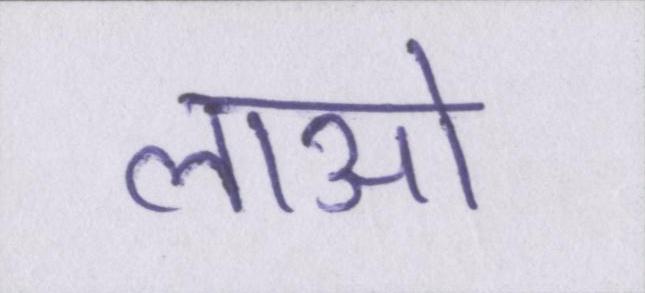 लाओ